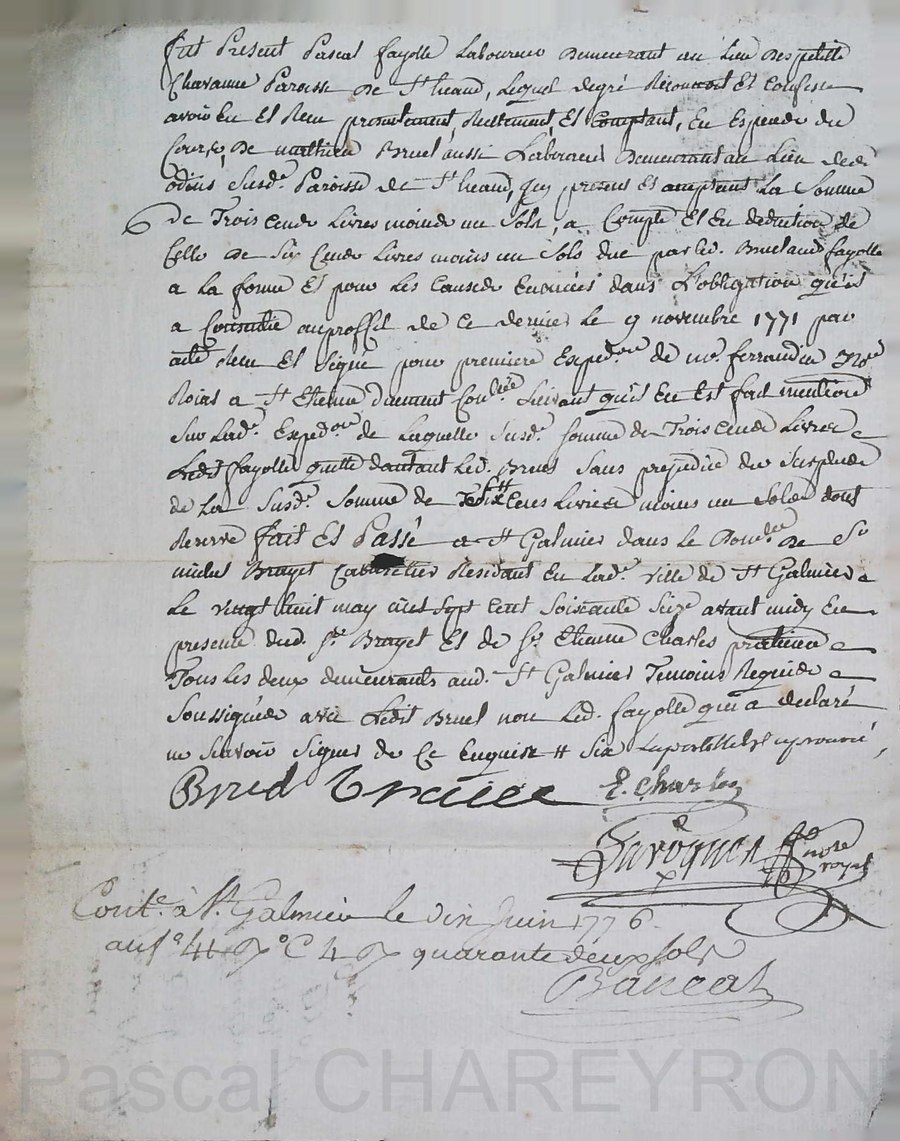 fut Present Pascal fayolle Laboureur Demeurant au Lieu des petite
Chavanne Paroisse De St heand, Lequel degré Reconnoit Et Confesse
avoir Eu Et Reçu presentement, Reellement, Et Comptant, En Especes du
Cours, De mathieu Bruel aussi Laboureur Demeurant au Lieu
Susde. Paroisse de St heand, icy present Et acceptant La Somme
de Trois Cends Livres moinds un Sols, a Compte Et En deduction de
Celle De Six Cends Livres moins un Sols due par led. Bruel aud. fayolle
a La forme Et pour Les Causes Enoncées dans L'obligation qu'il
a Consentie au proffit de Ce dernier Le 9 novembre 1771 par
acte Reçu Et Signé pour premiere Expedon. de me. ferrandin Nore
Roial a St Etienne dument Conlée. Suivant qu'il En Est fait mention
Sur Lade. Expedon. de Laquelle Susde. Somme de Trois Cends Livres
Ledit fayolle quitte dautant Led. Bruel Sans prejudice du Surplus
de La Susde. Somme de Livres moins un Sols dont
Reserve fait Et Passé a St Galmier dans Le Domle. De Sr
michel Brayet Cabaretier Résidant En Lade. ville de St Galmier
Le vingt huit may mil Sept Cent Soixante Seize avant midy En
presence dud. Sr. Brayet Et de Sr. Etienne Charles praticien
Tous Les deux demeurants aud. St Galmier Temoins Requis
Soussignés avec Ledit Bruel non Led. fayolle qui a declaré
ne Savoir Signer de Ce Enquis # Six approuvé,
Bruel E. Charles
nore royal
Conle. à St. Galmier le dix Juin 1776.
au fo 41 Vo C 4 quarante deux sols
Bancal
Pascal CHAREYRON